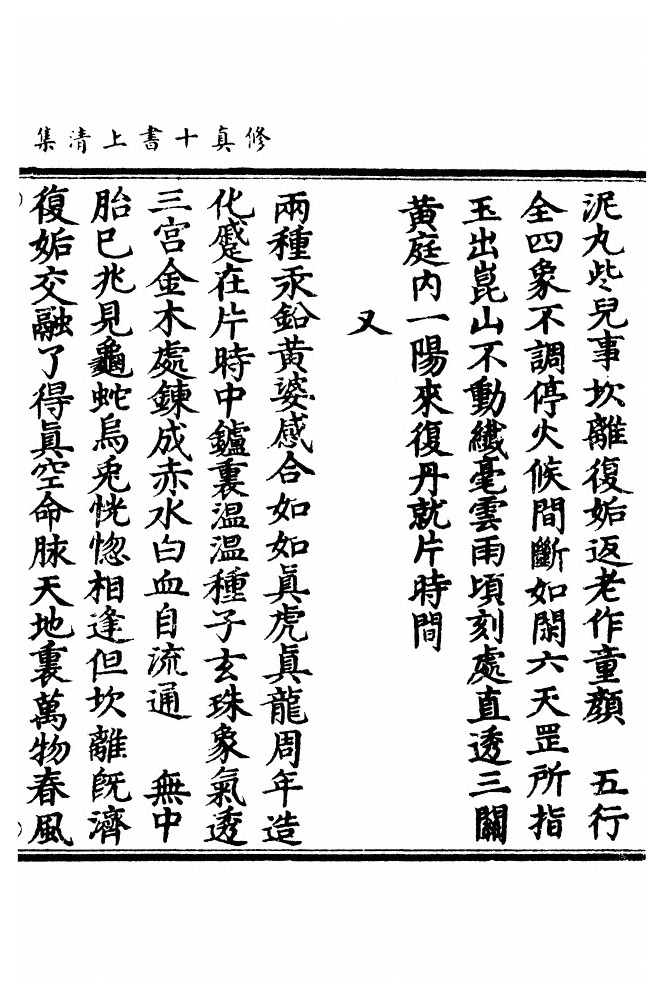 修真十書上清集
泥丸些兒事坎離復姤返老作童顏　五行
全四象不調停火候間斷如閑六天罡所指
玉出崑山不動纖毫雲雨頃刻處直透三關
黃庭內一陽來復丹就片時間
又
兩種汞鉛黃婆感合如如真虎真龍周年造
化蹙在片時中鑪裏溫溫種子玄珠象氣透
三宮金木處鍊成赤水白血自流通　無中
胎已兆見龜蛇烏兎恍惚相逢但坎離既濟
復姤交融了得真空命脉天地裏萬物春風